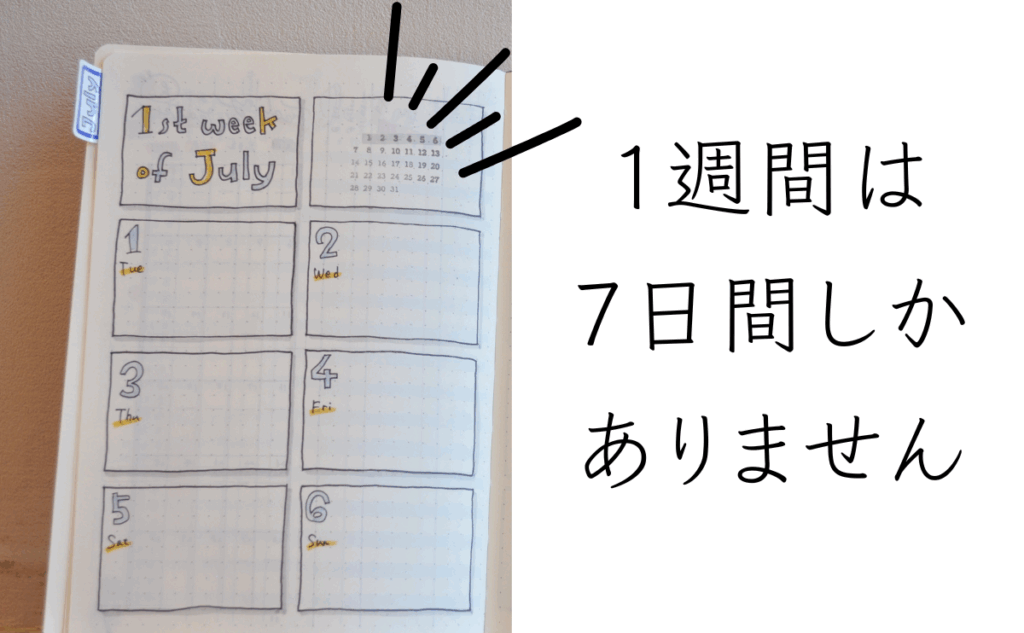 1st week
of July
1 2 3 4 5 6
7 8 9 10 11 12 13
14 15 16 17 18 19 20
21 22 23 24 25 26 27
28 29 30 31
1
Tue
2
Wed
3
Thu
4
Fri
5
Sat
6
Sun
1週間は
7日間しか
ありません